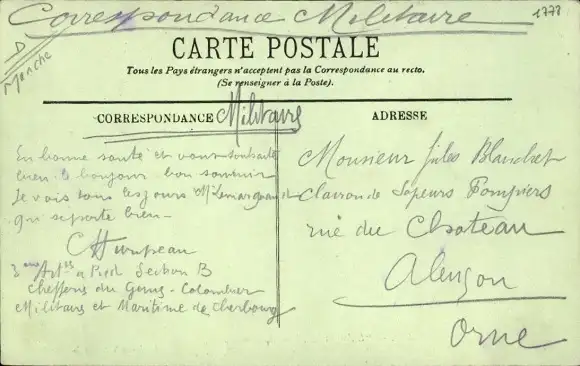 Correspondance Militaire
1778
D
Manche
CARTE POSTALE
Tous les Pays étrangers n'acceptent pas la Correspondance au recto.
(Se renseigner à la Poste).
CORRESPONDANCE Militaire
En bonne santé et vous souhaite
bien le bonjour bon souvenir
Je vois tous les jours Mr Lemarquand
qui se porte bien –
3eme Artie à Pied Section B
du Génie - Colombier
Militaire et Maritime de Cherbourg
ADRESSE
Monsieur Jules Blanchet
Clairon de Sapeurs Pompiers
rue du Chateau
Alençon
Orne